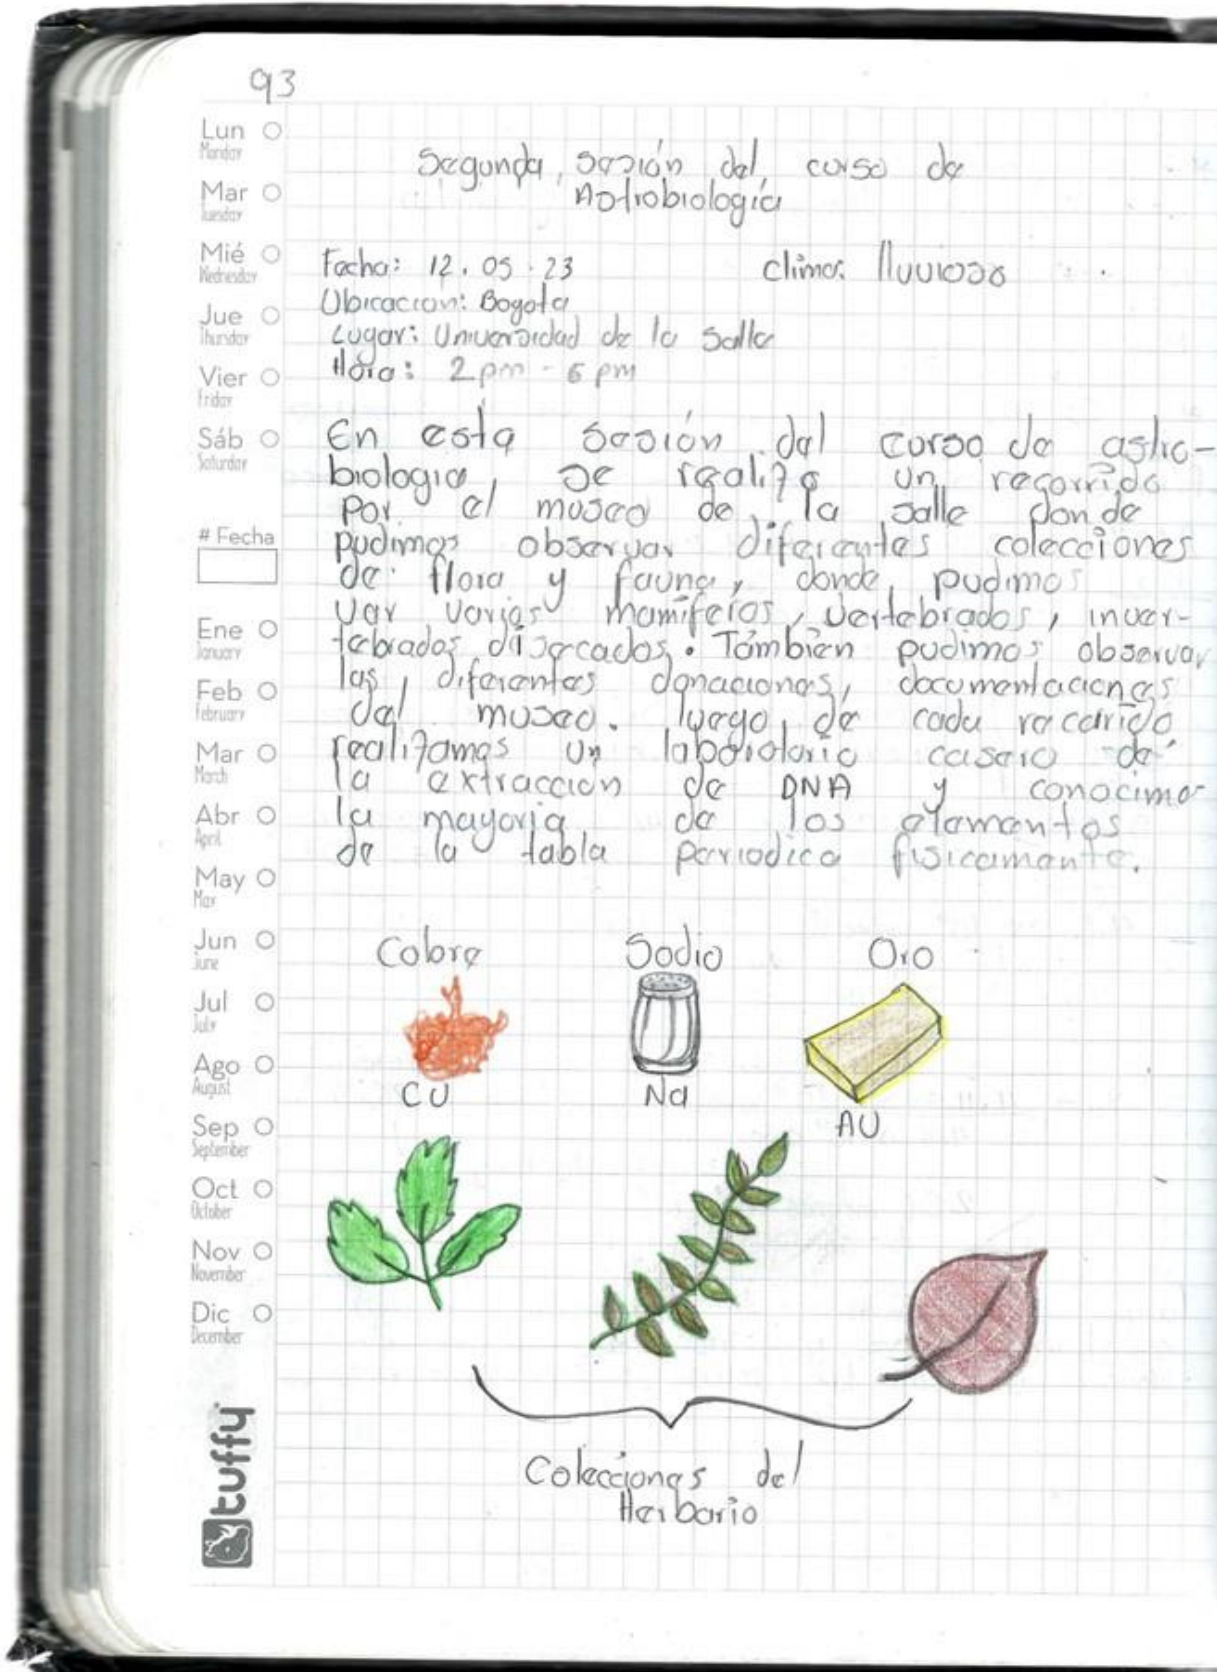 93
Lun
Monday
Mar
Tuesday
Mié
Wednesday
Jue
Thursday
Vier
Friday
Sáb
Saturday
# Fecha
Ene
January
Feb
February
Mar
March
Abr
April
May
May
Jun
June
Jul
July
Ago
August
Sep
September
Oct
October
Nov
November
Dic
December
tuffy
Segunda sesión del curso de
Astrobiología
Fecha: 12.05.23 Clima: lluvioso
Ubicacion: Bogota
Lugar: Universidad de la Salle
Hora: 2 pm - 6 pm
En esta sesión del curso de astro-
biologia, se realizo un recorrido
por el museo de la salle donde
pudimos observar diferentes colecciones
de flora y fauna, donde pudimos
ver varios mamiferos, vertebrados, inver-
tebrados disecados. También pudimos observar
las diferentes donaciones, documentaciones
del museo. luego de cada recorrido
realizamos un laboratorio casero de
la extracción de DNA y conocimos
la mayoria de los elementos
de la tabla periodica fisicamente.
Cobre Sodio Oro
CU Na AU
Colecciones del
Herbario